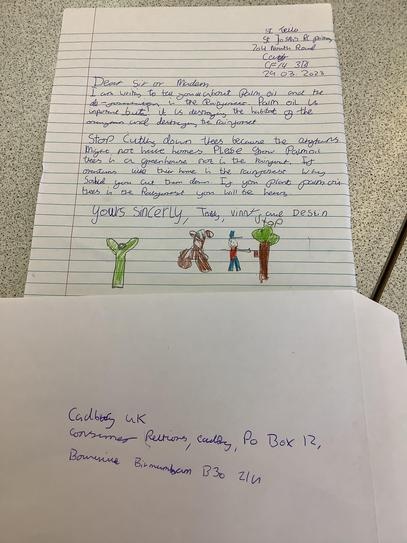 St Teilo
St Joseph's RC primary
North Road
CF14 3
29.03.2023
Dear Sir or Madam
I am writing to tell you about Palm oil and the
in the Rainforest. Palm oil is
important but it is destroying the habitat of the
and destroying the rainforest
Stop Cutting down trees because the
Might not have homes. Please Grow Palm oil
trees in a greenhouse not in the Rainforest. If
their home in the rainforest Why
you cut them down. If you plant palm oil
trees in the Rainforest you will be
Yours Sincerly, Toby, Vinny, and Destin
stop
Cadbury UK
Consumer Reltions, Cadbury, Po Box 12,
Bournville Birmingham B30 2LU